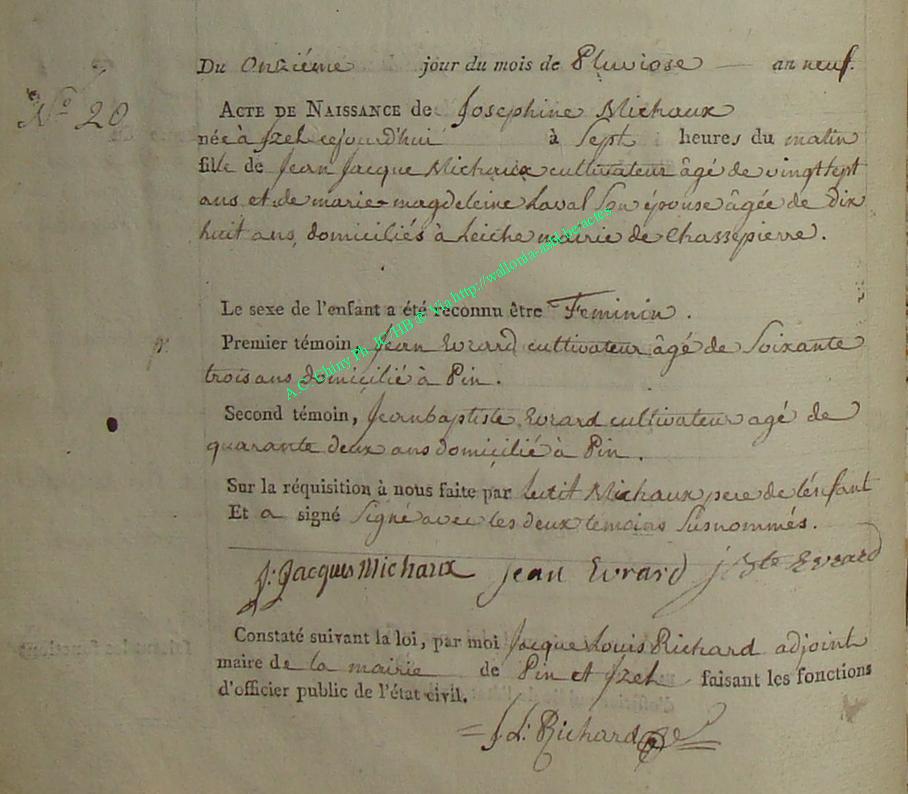 Du Onziéme jour du mois de Pluviose an neuf.
N.º 20
ACTE DE NAISSANCE de Josephine Michaux
née à Izel cejourd'hui à Sept heures du matin
fille de Jean Jacque Michaux cultivateur âgé de vingt sept
ans et de marie-magdeleine Laval Son épouse âgée de Dix
huit ans, domiciliés à Leiche mairie de Chassepierre.
Le sexe de l'enfant a été reconnu être Feminin.
Premier témoin, Jean Evrard cultivateur âgé de Soixante
trois ans domicilié à Pin.
Second témoin, Jean baptiste Evrard cultivateur agé de
quarante deux ans domicilié à Pin.
Sur la réquisition à nous faite par ledit Michaux pere de l'enfant
Et a signé Signé avec les deux témoins Susnommés.
J: Jacques Michaux Jean Evrard J Bte Evrard
Constaté suivant la loi, par moi Jacque Louis Richard adjoint
maire de la mairie de Pin et Izel faisant les fonctions
d'officier public de l'état civil.
J L: Richard
A.C. Chiny Ph. JC HB © Via http://wallonia-asbl.be/actes